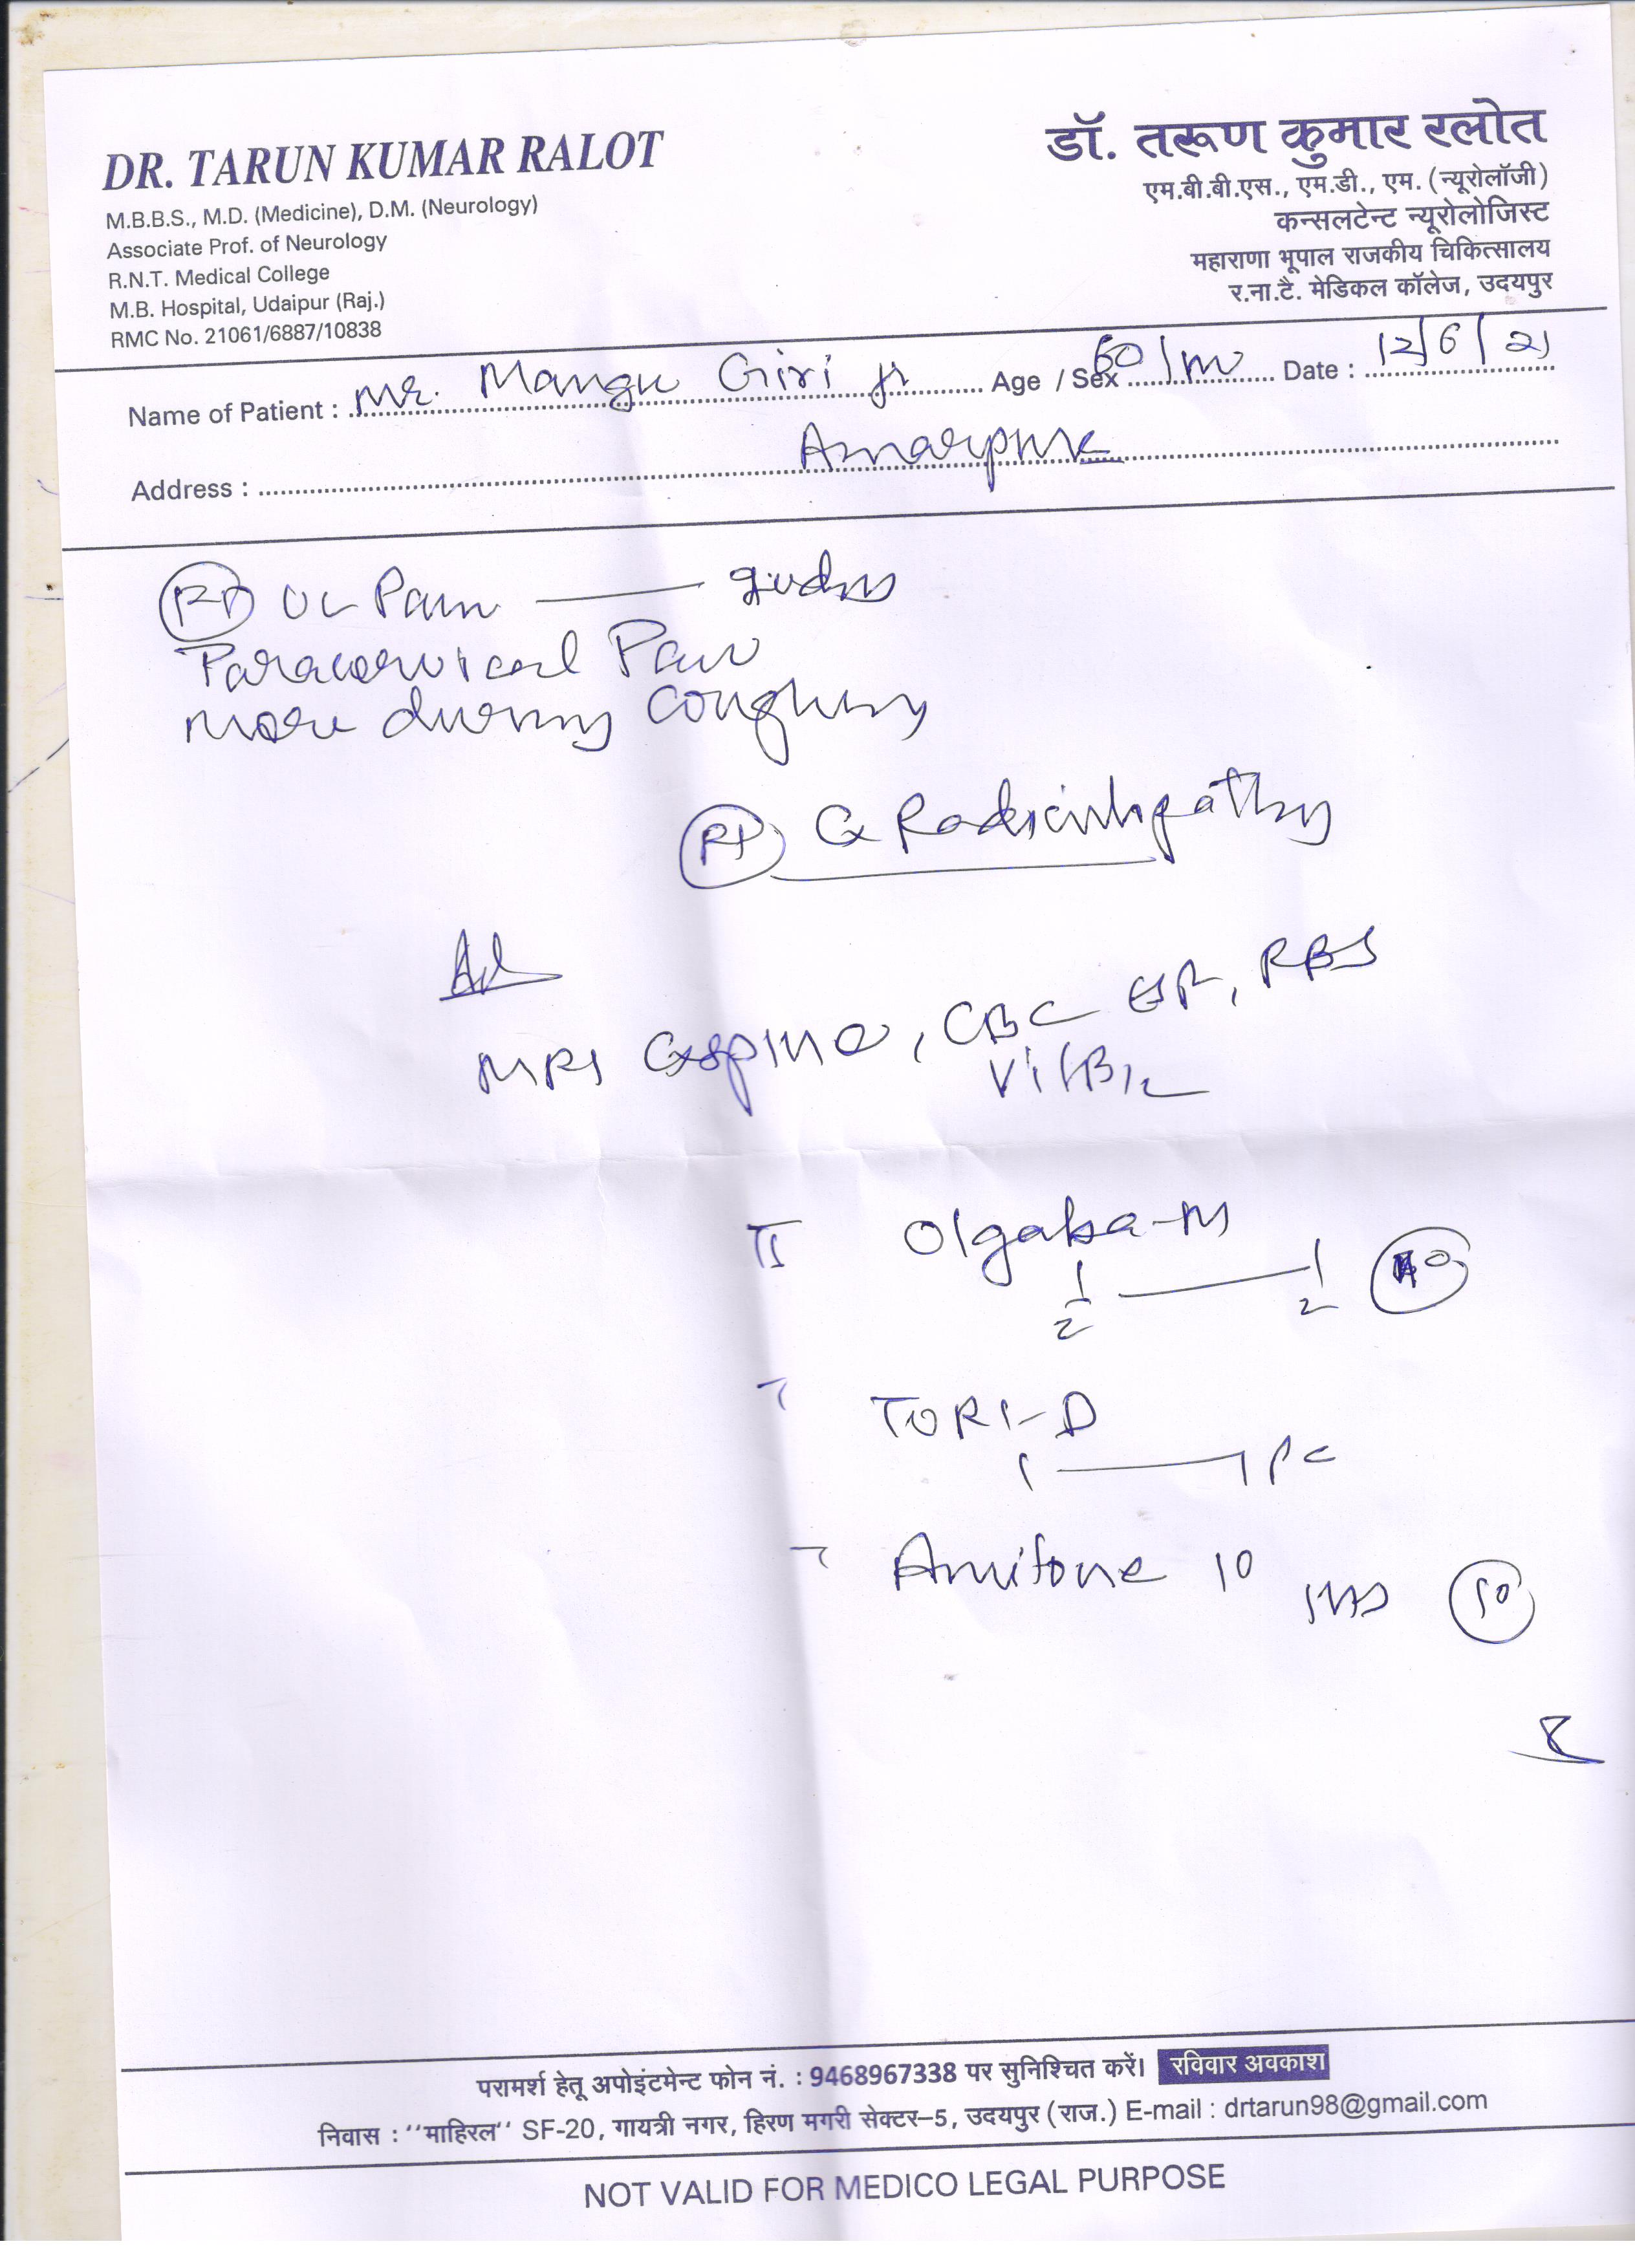 DR. TARUN KUMAR RALOT
M.B.B.S., M.D. (Medicine), D.M. (Neurology)
Associate Prof. of Neurology
R.N.T. Medical College
M.B. Hospital, Udaipur (Raj.)
RMC No. 21061/6887/10838
डॉ. तरूण कुमार रलोत
एम.बी.बी.एस., एम.डी., एम. (न्यूरोलॉजी)
कन्सलटेन्ट न्यूरोलोजिस्ट
महाराणा भूपाल राजकीय चिकित्सालय
र.ना.टै. मेडिकल कॉलेज, उदयपुर
Name of Patient : Mr. Mangu Giri ji Age / Sex 60/m Date : 12/6/21
Address : Amarpura
Rt UL Pain
Paracervical Pain
more during coughing
Rt Cx Radiculopathy
Ad
MRI Cx spine, CBC ESR, RBS
Vit B12
Olgaba-M
1/2 — 1/2
TORI-D
1 — 1 PC
Amitone 10 1 HS 10
परामर्श हेतू अपोइंटमेन्ट फोन नं. : 9468967338 पर सुनिश्चित करें। रविवार अवकाश
निवास : ''माहिरल'' SF-20, गायत्री नगर, हिरण मगरी सेक्टर–5, उदयपुर (राज.) E-mail : drtarun98@gmail.com
NOT VALID FOR MEDICO LEGAL PURPOSE